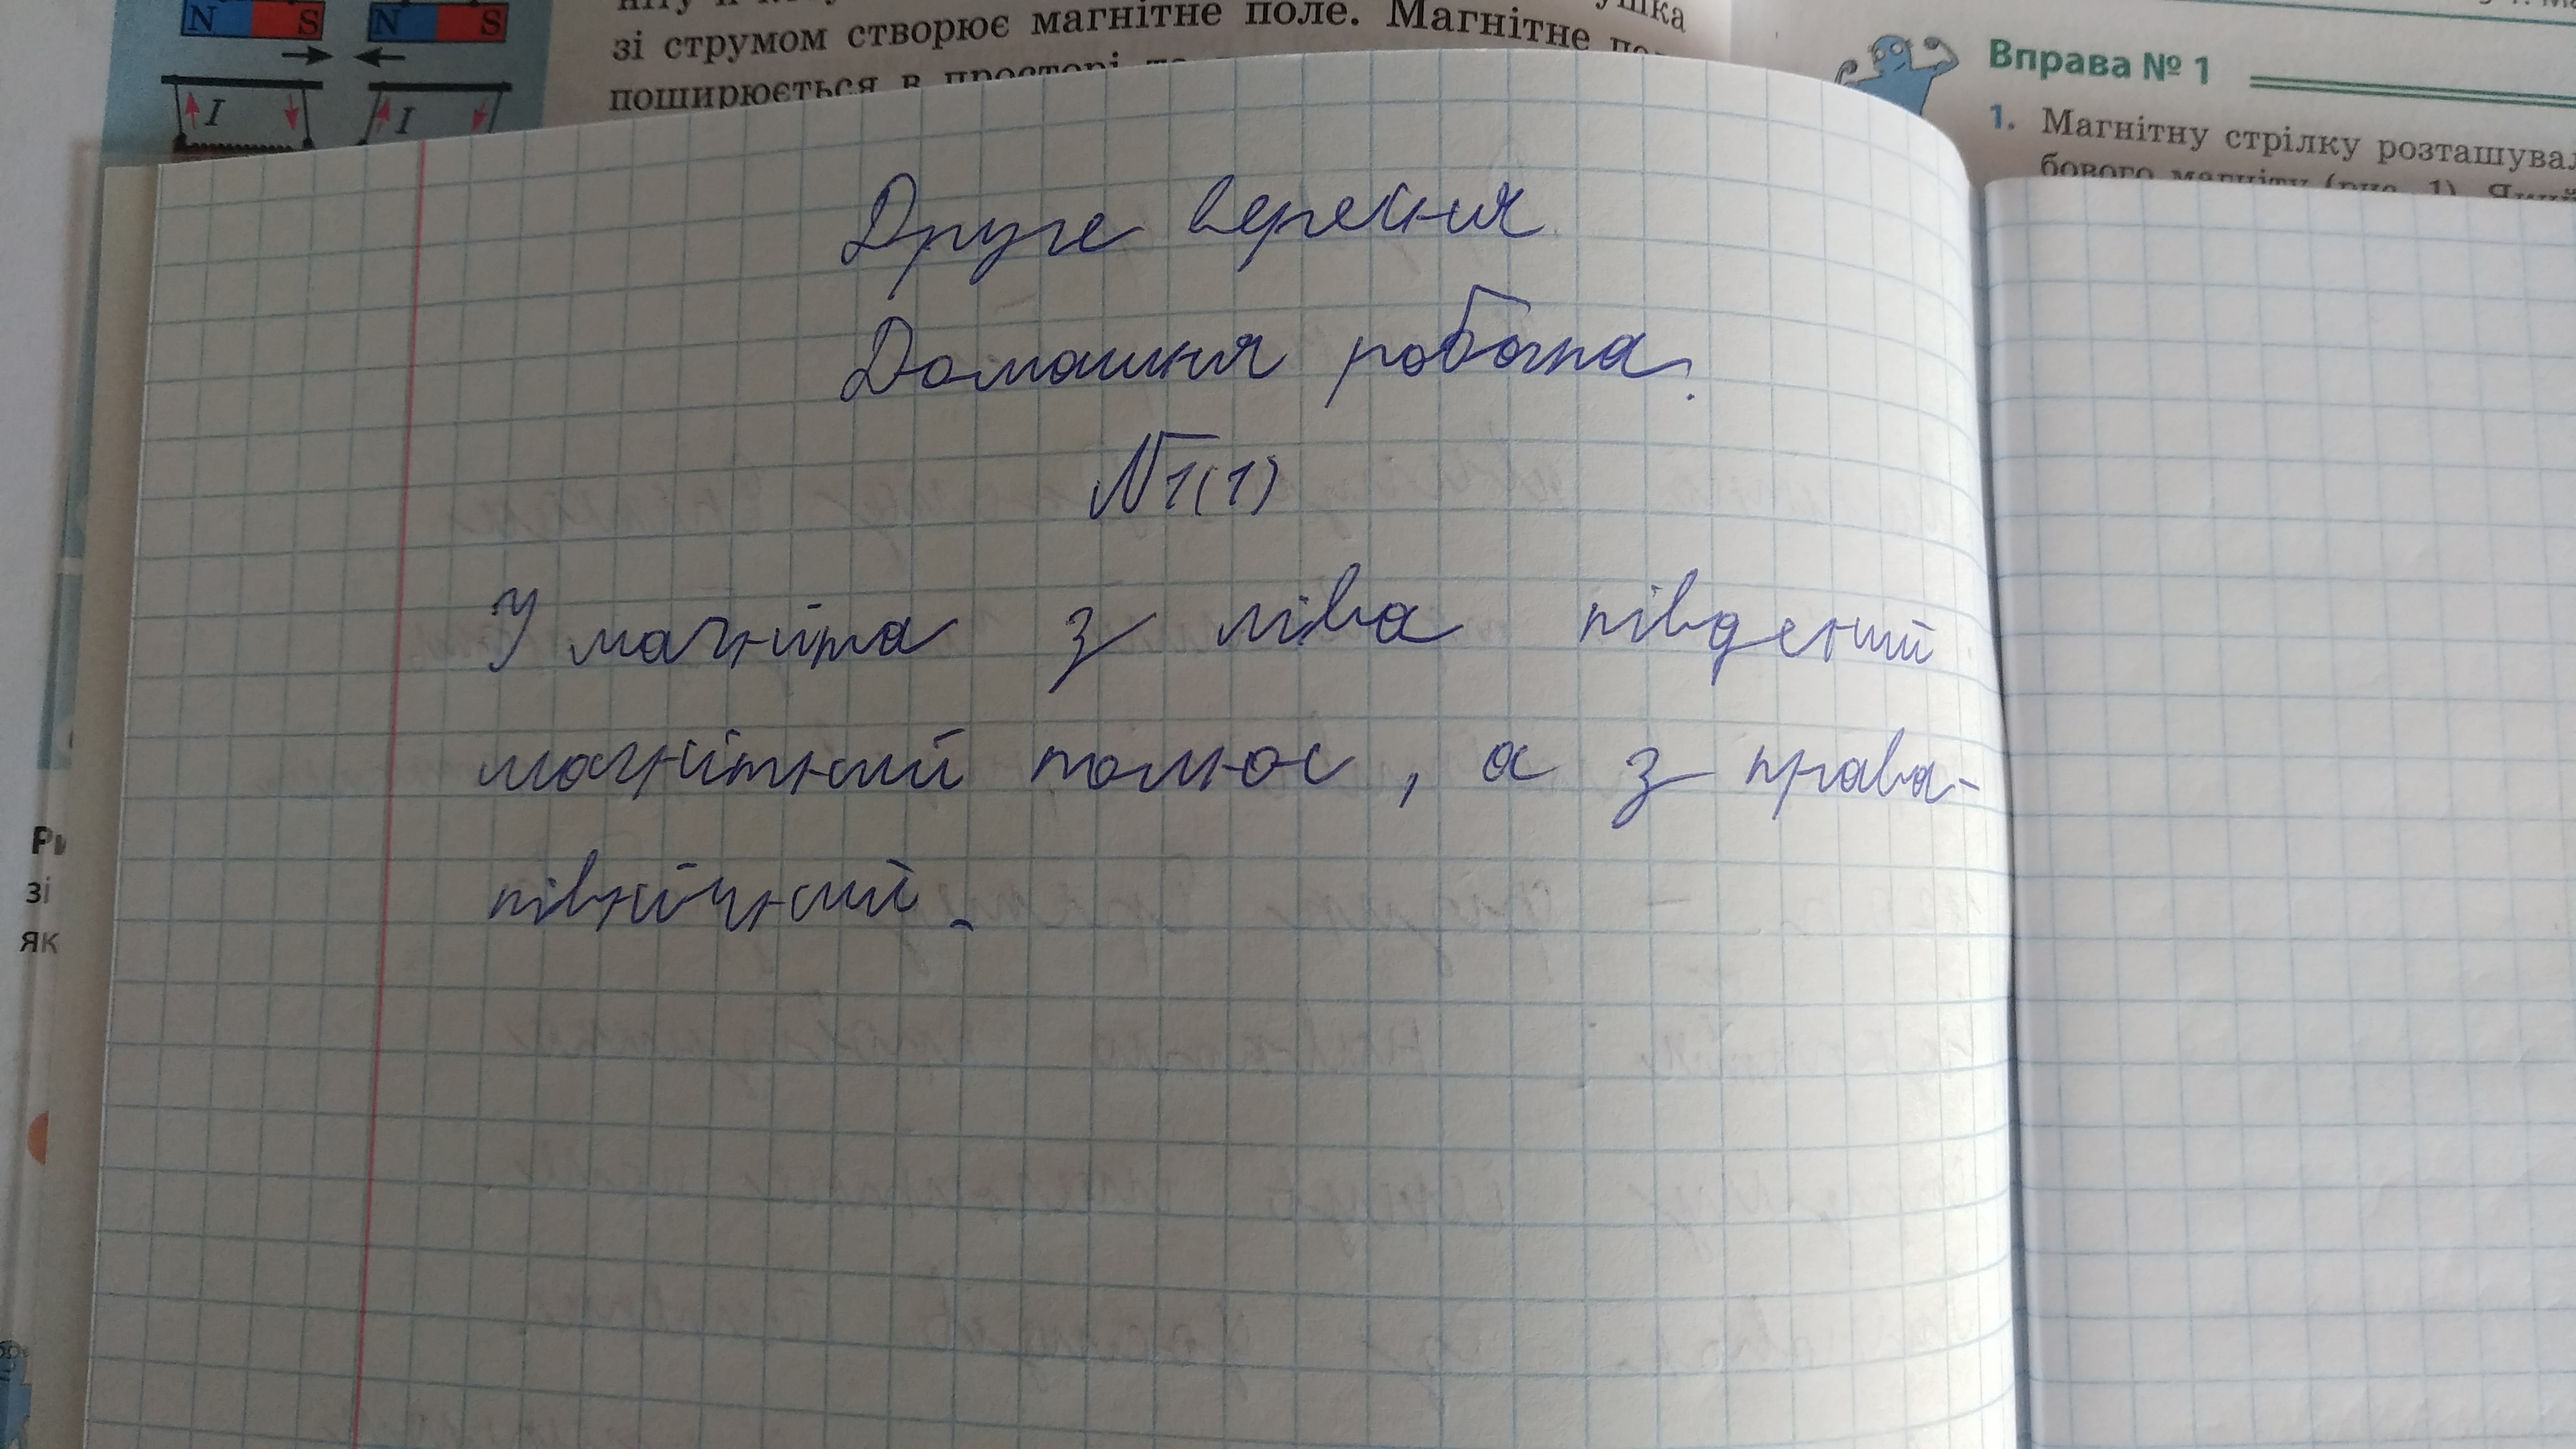 N S N S
I I
зі струмом створює магнітне поле. Магнітне
поширюється в просторі
Вправа № 1
1. Магнітну стрілку розташувал
бового магніту (рис. 1). Який
Друге вересня
Домашня робота.
№1(1)
У магніта з ліва південий
магнітний полюс, а з права-
північний.
зі
як